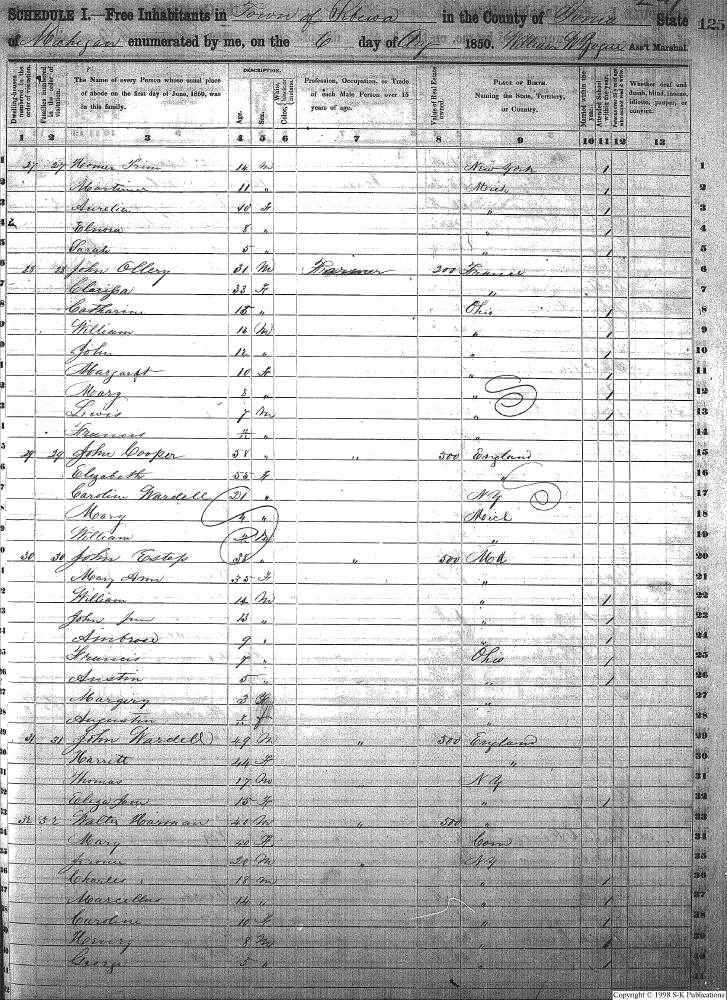 125
SCHEDULE I.—Free Inhabitants in Town of Sebewa in the County of Ionia State
of Michigan enumerated by me, on the 6 day of Aug 1850. William W Ass't Marshal.
Dwelling-houses numbered in the order of visitation.
Families numbered in the order of visitation.
The Name of every Person whose usual place of abode on the first day of June, 1850, was in this family.
DESCRIPTION.
Age.
Sex.
White, black, or mulatto.
Color,
Profession, Occupation, or Trade of each Male Person over 15 years of age.
Value of Real Estate owned.
PLACE OF BIRTH. Naming the State, Territory, or Country.
Married within the year.
Attended School within the year.
Whether deaf and dumb, blind, insane, idiotic, pauper, or convict.
1 2 3 4 5 6 7 8 9 10 11 12 13
1 27 27 Homer 14 M New York / 1
2 Mortimer 11 " Mich / 2
3 Aurelia 10 F " / 3
4 Elnora 8 " " / 4
5 Sarah 5 " " / 5
6 28 28 John Ollery 31 M Farmer 200 France 6
7 Clarissa 33 F " 7
8 Catharine 15 " Ohio / 8
9 William 14 M " / 9
10 John 12 " " / 10
11 Margaret 10 F " / 11
12 Mary 8 " " / 12
13 Lewis 7 M " / 13
14 Francis " " 14
15 29 29 John Cooper 58 " " 500 England 15
16 Elizabeth 55 F " 16
17 Caroline Wardell 21 " N Y 17
18 Mary 4 " Mich 18
19 William M " 19
20 30 30 John Estep 38 " " 500 Md 20
21 Mary Ann 35 F " 21
22 William 14 M " / 22
23 John Jun 13 " " / 23
24 Ambrose 9 " " / 24
25 Francis 7 " Ohio / 25
26 Austin 5 " " / 26
27 Margery 3 F " 27
28 Augustin " 28
29 31 31 John Wardell 49 M " 500 England 29
30 Harriett 44 F " 30
31 Thomas 17 M N Y 31
32 Eliza Jane 15 F " / 32
33 32 32 Walter Harman 40 M " 500 " 33
34 Mary 40 F Conn 34
35 Jerome 20 M N Y 35
36 Charles 18 M " / 36
37 Marcellus 14 " " / 37
38 Caroline 10 F " / 38
39 Henry 8 M " / 39
40 George 5 " " / 40
Copyright © 1998 S-K Publications